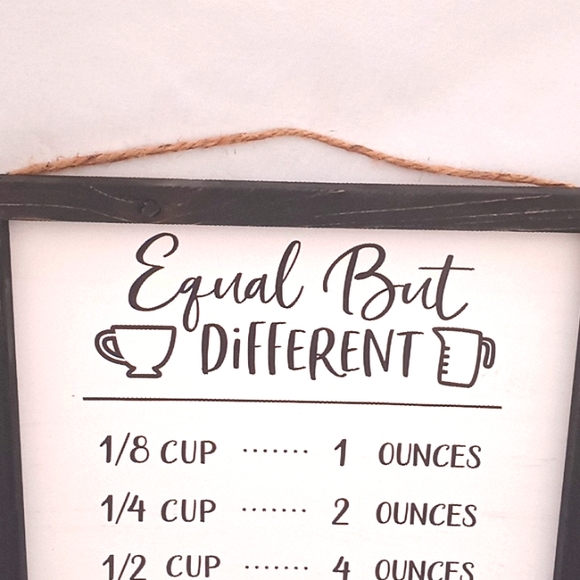 Equal But
DiFFERENT
1/8 CUP ....... 1 OUNCES
1/4 CUP ....... 2 OUNCES
1/2 CUP ....... 4 OUNCES